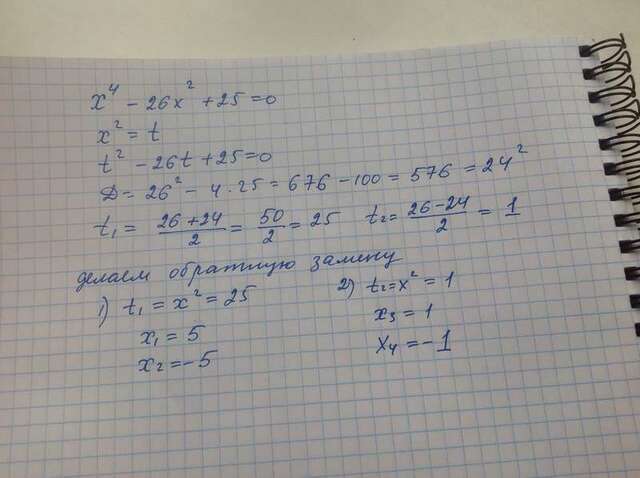 x⁴ - 26x² + 25 = 0
x² = t
t² - 26t + 25 = 0
Д = 26² - 4 · 25 = 676 - 100 = 576 = 24²
t₁ = (26 + 24)/2 = 50/2 = 25 t₂ = (26 - 24)/2 = 1
делаем обратную замену
1) t₁ = x² = 25 2) t₂ = x² = 1
x₁ = 5 x₃ = 1
x₂ = -5 x₄ = -1